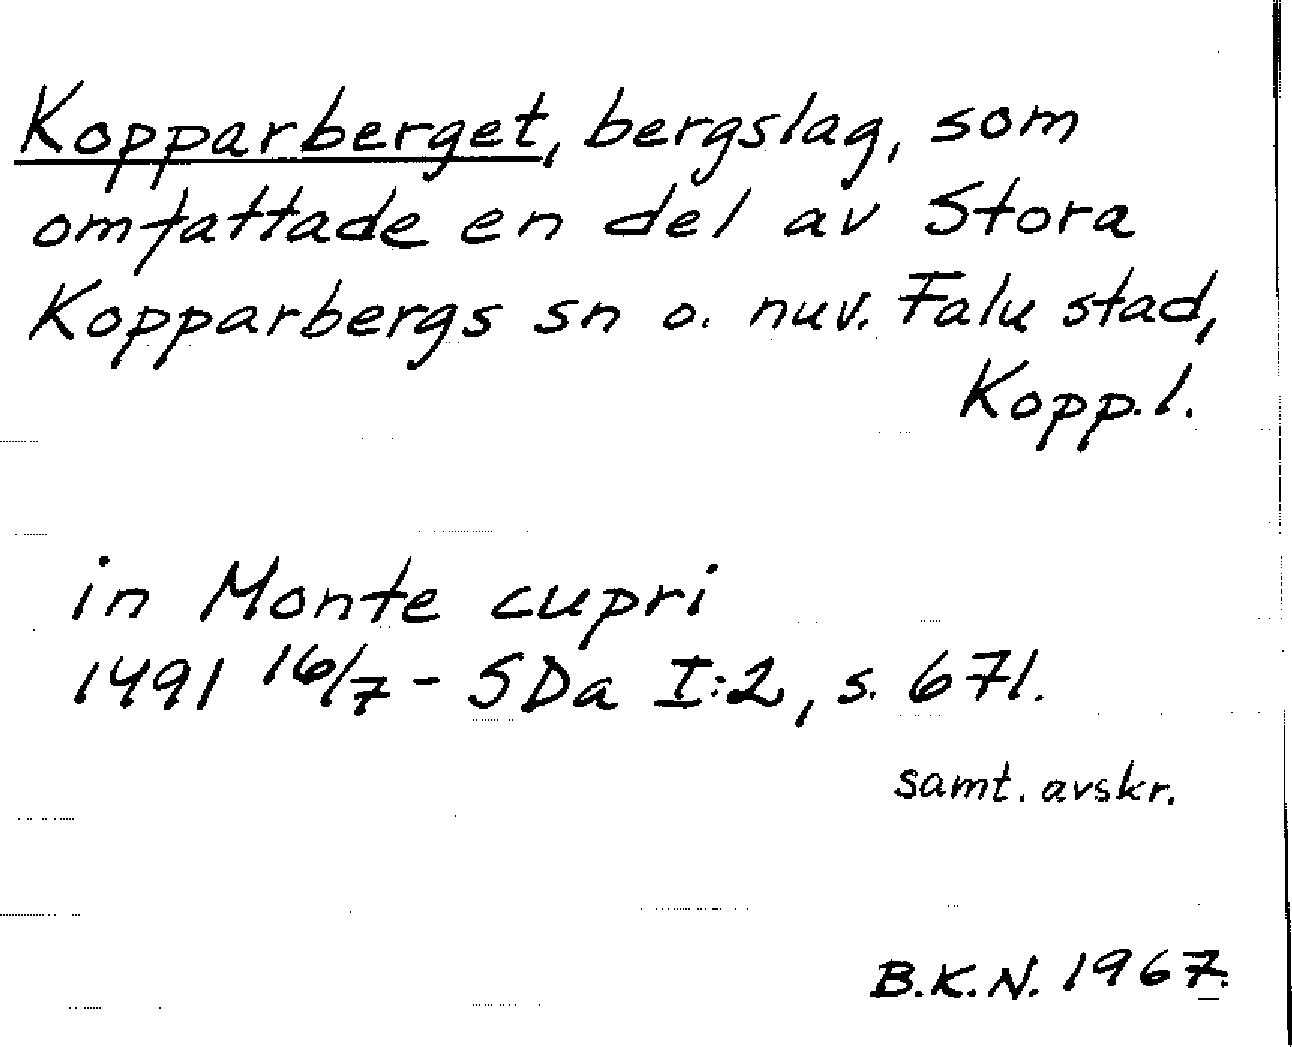 Kopparberget, bergslag, som
omfattade en del av Stora
Kopparbergs sn o. nuv. Falu stad,
Kopp.l.
in Monte cupri
1491 16/7 - SDa I:2, s. 671.
samt. avskr.
B.K.N. 1967.